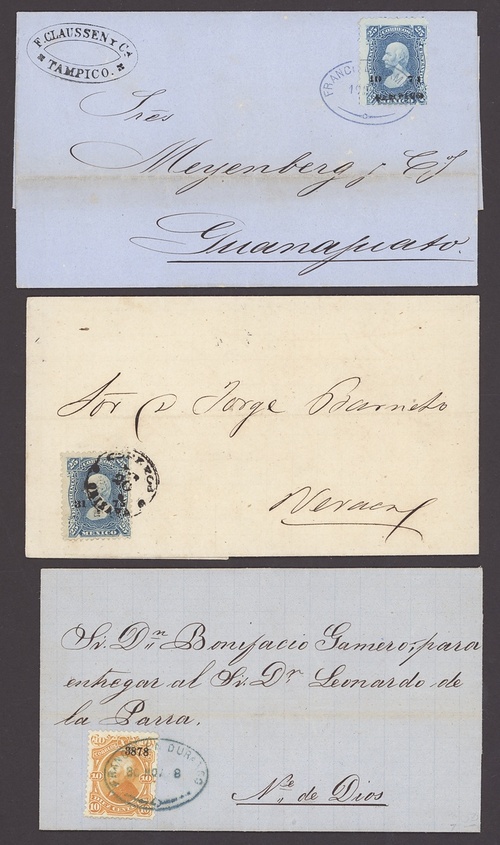 F. CLAUSSEN Y Ca
TAMPICO.
25 25
FRANC
10 74
TAMPICO
Sres
Meyenberg y Ca
Guanajuato.
Sor D Jorge Barneto
MEXICO
Veracruz
Sr. Dn Bonifacio Gamero, para
entregar al Sr. Dr Leonardo de
la Parra.
3878
FRANCO DURANGO
10 10
Nre de Dios